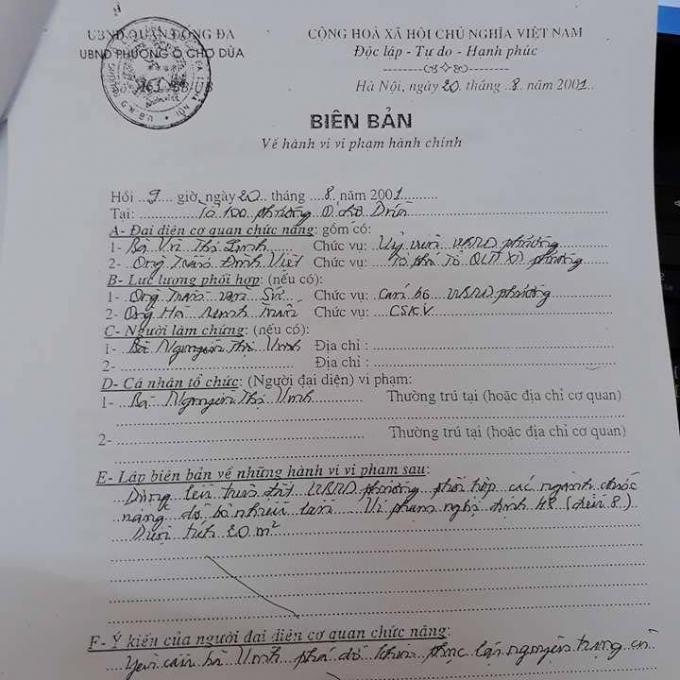 UBND QUẬN ĐỐNG ĐA
UBND PHƯỜNG Ô CHỢ DỪA
CỘNG HOÀ XÃ HỘI CHỦ NGHĨA VIỆT NAM
Độc lập - Tự do - Hạnh phúc
Hà Nội, ngày 20 tháng 8 năm 2001
BIÊN BẢN
Về hành vi vi phạm hành chính
Hồi 9 giờ, ngày 20 tháng 8 năm 2001
Tại: Tổ phường Ô chợ Dừa
A- Đại diện cơ quan chức năng: gồm có:
1- Bà Vũ Thị Chức vụ: Uỷ viên UBND phường
2- Ông Trần Đình Việt Chức vụ: Tổ phó Tổ QLTTXD phường
B- Lực lượng phối hợp: (nếu có):
1- Ông Trần Văn Chức vụ: Cán bộ UBND phường
2- Ông Hà Minh Tuấn Chức vụ: CSKV
C- Người làm chứng: (nếu có):
1- Bà Nguyễn Thị Vinh Địa chỉ :
2- Địa chỉ :
D- Cá nhân tổ chức: (Người đại diện) vi phạm:
1- Bà Nguyễn Thị Vinh Thường trú tại (hoặc địa chỉ cơ quan)
2- Thường trú tại (hoặc địa chỉ cơ quan)
E- Lập biên bản về những hành vi vi phạm sau:
Dựng lều trên đất UBND phường phối hợp các ngành chức
năng dỡ bỏ nhiều lần. Vi phạm nghị định 48 (điều 8)
Diện tích 20 m²
F- Ý kiến của người đại diện cơ quan chức năng:
Yêu cầu bà Vinh phá dỡ khôi phục lại nguyên trạng